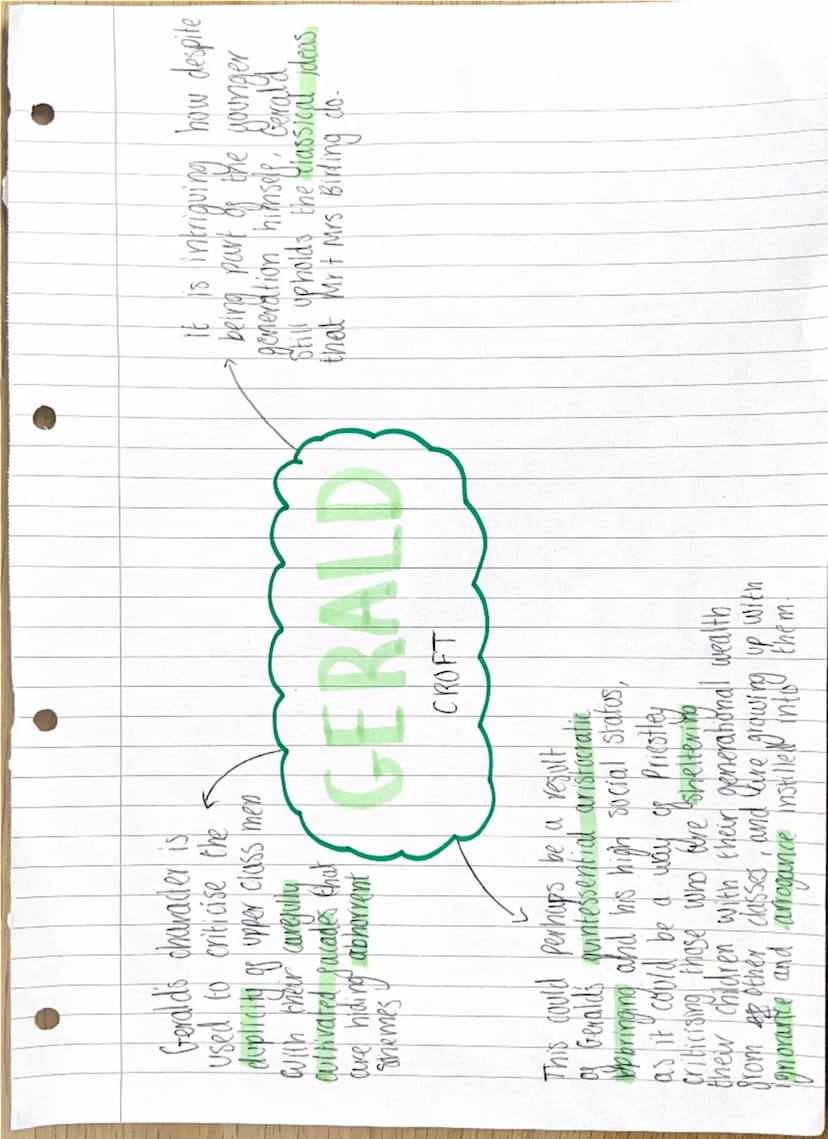 GERALD
CROFT
Gerald's character is
used to criticise the
duplicity of upper class men
with their carefully
cultivated facades that
are hiding abhorrent
shemes
It is intriguing how despite
being part of the younger
generation himself, Gerald
still upholds the classical ideas
that Mr + Mrs Birling do.
This could perhaps be a result
of Geralds quintessential aristocratic
upbringing and his high social status,
as it could be a way of Priestley
criticising those who are sheltering
their children with their generational wealth
from other classes, and are growing up with
ignorance and arrogance instilled into them.